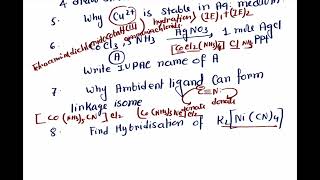 4 draw
5. Why Cu2+ is stable in Aq. medium
hydration) (IE1+IE2)
Tetraamminedichlorocobalt(III) chloride
6. CoCl3, 5NH3 AgNO3, 1 mole AgCl
(A) [CoCl2(NH3)4] Cl NH3 PPt
Write IUPAC name of A
7. Why Ambident ligand can form
linkage isome C≡N:
donate donate
[Co(NH3)5CN]Cl2 (Co(NH3)5NC)Cl2
8. Find Hybridisation of K2[Ni(CN)4]